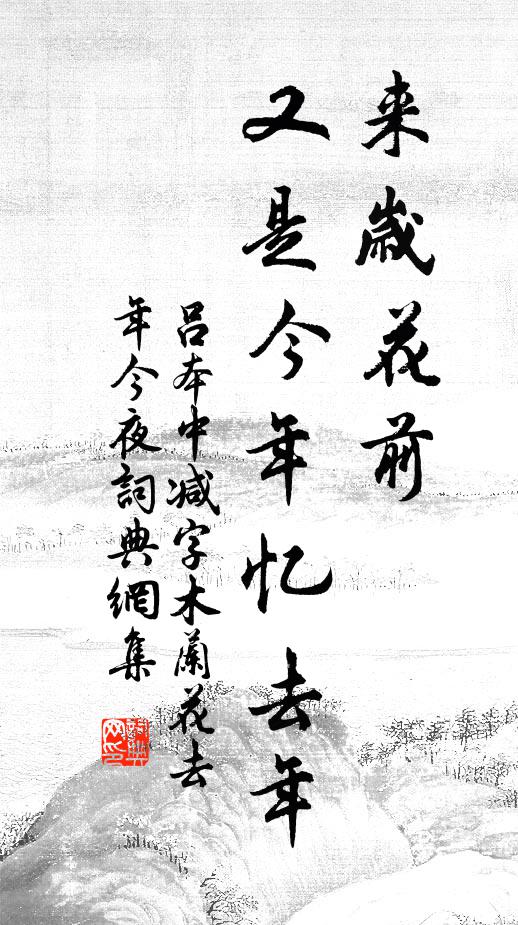 来歲花前
又是今年忆去年
吕本中减字木蘭花去
年今夜詞典網集